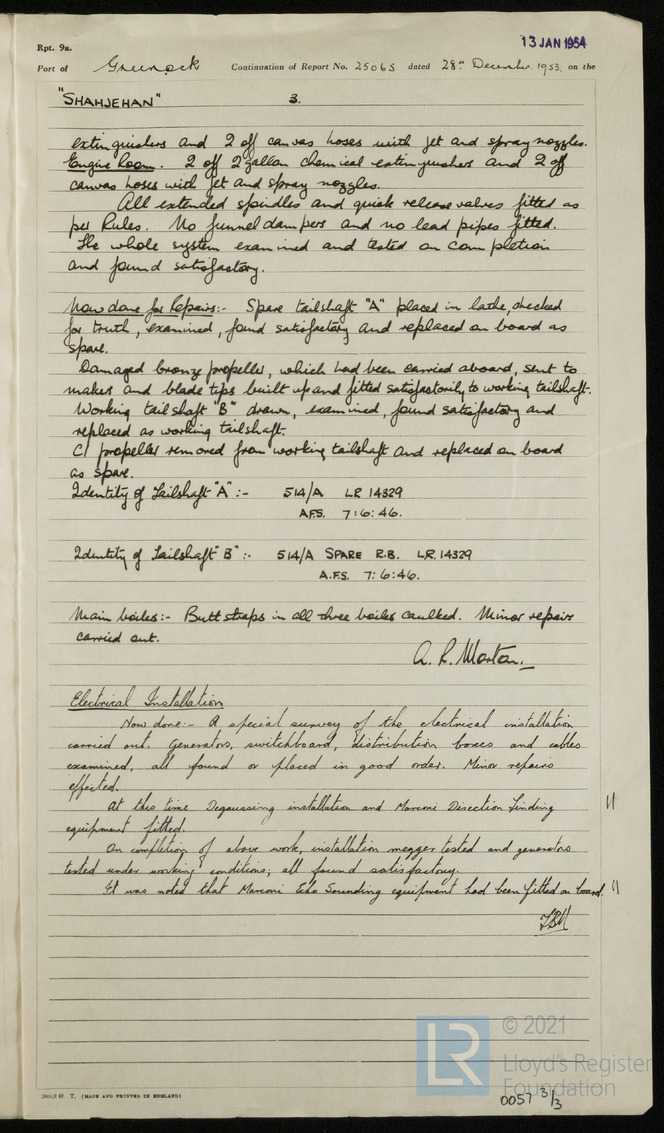 Rpt. 9a.
13 JAN 1954
Port of Greenock Continuation of Report No. 25065 dated 28th December 1953. on the
"SHAHJEHAN" 3.
extinguishers and 2 off canvas hoses with jet and spray nozzles.
Engine Room. 2 off 2 gallon chemical extinguishers and 2 off
canvas hoses with jet and spray nozzles.
All extended spindles and quick release valves fitted as
per Rules. No funnel dampers and no lead pipes fitted.
The whole system examined and tested on completion
and found satisfactory.
Now done for Repairs:- Spare tailshaft "A" placed in lathe, checked
for truth, examined, found satisfactory and replaced on board as
spare.
Damaged bronze propeller, which had been carried aboard, sent to
makers and blade tips built up and fitted satisfactorily to working tailshaft.
Working tailshaft "B" drawn, examined, found satisfactory and
replaced as working tailshaft.
C/I propeller removed from working tailshaft and replaced on board
as spare.
Identity of Tailshaft "A" :- 514/A LR 14329
A.F.S. 7:6:46.
Identity of Tailshaft "B" :- 514/A SPARE R.B. LR.14329
A.F.S. 7:6:46.
Main boilers:- Butt straps in all three boilers caulked. Minor repairs
carried out.
A. R. Morton.
Electrical Installation
Now done:- A special survey of the electrical installation
carried out. Generators, switchboard, distribution boxes and cables
examined, all found or placed in good order. Minor repairs
effected.
At this time Degaussing installation and Marconi Direction Finding
equipment fitted.
On completion of above work, installation megger tested and generators
tested under working conditions; all found satisfactory.
It was noted that Marconi Echo Sounding equipment had been fitted on board.
LR
© 2021
Lloyd's Register
Foundation
T. (MADE AND PRINTED IN ENGLAND)
0057 3/3